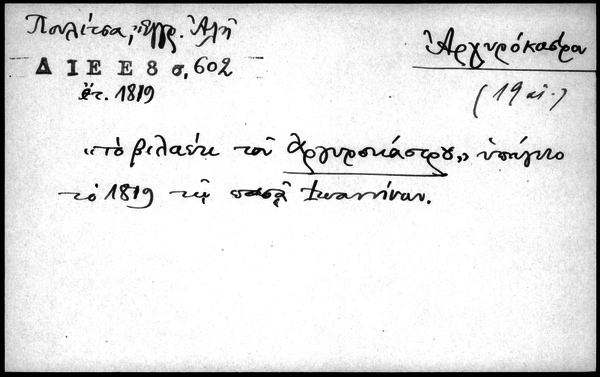 Πουλίτσα, Ἔγγρ. Ἀλῆ
Δ Ι Ε Ε 8 σ. 602
ἔτ. 1819
Ἀργυρόκαστρον
(19 αἰ.)
«τὸ βιλαέτι τοῦ Ἀργυροκάστρου» ὑπάγεται
τὸ 1819 τῷ πασᾷ Ἰωαννίνων.